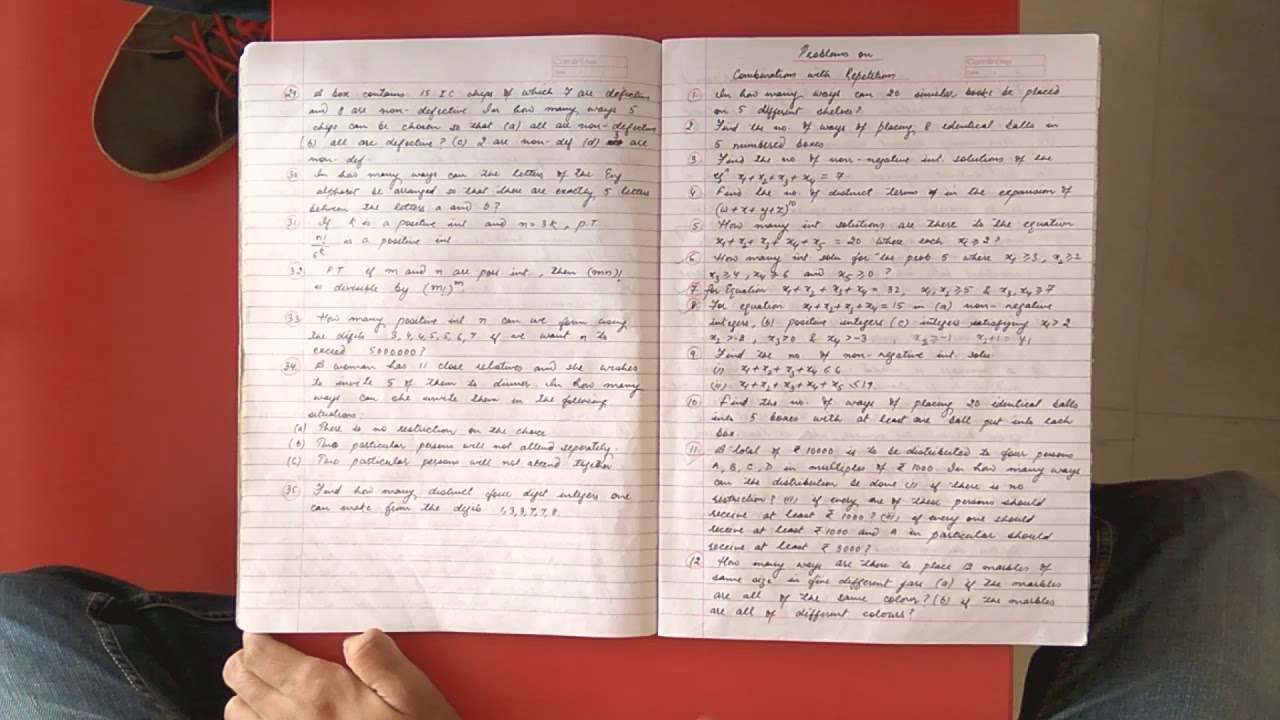 29. A box contains 15 IC chips of which 7 are defective
and 8 are non-defective. In how many ways 5
chips can be chosen so that (a) all are non-defective
(b) all are defective? (c) 2 are non-def (d) 3 are
non-def.
30. In how many ways can the letters of the Eng
alphabet be arranged so that there are exactly 5 letters
between the letters a and b?
31. If k is a positive int and n = 3k, P.T
n!/6^k is a positive int
32. P.T if m and n are post. int, then (mn)!
is divisible by (m!)^m
33. How many positive int n can we form using
the digits 3,4,4,5,5,6,7 if we want n to
exceed 5000000?
34. A woman has 11 close relatives and she wishes
to invite 5 of them to dinner. In how many
ways can she invite them in the following
situations:
(a) There is no restriction on the choice
(b) Two particular persons will not attend seperately.
(c) Two particular persons will not attend together.
35. Find how many distinct four digit integers one
can make from the digits 1,3,3,7,7,8.
Problems on
Combinations with Repetitions
1. In how many ways can 20 similar books be placed
on 5 different shelves?
2. Find the no. of ways of placing 8 identical balls in
5 numbered boxes
3. Find the no of non-negative int. solutions of the
eqn x1+x2+x3+x4 = 7
4. Find the no. of distinct terms of in the expansion of
(w+x+y+z)^10
5. How many int solutions are there to the equation
x1+x2+x3+x4+x5 = 20 where each xi ≥ 2?
6. How many int soln for the prob 5 where x1 ≥ 3, x2 ≥ 2
x3 ≥ 4, x4 ≥ 6 and x5 ≥ 0?
7. For Equation x1+x2+x3+x4 = 32, x1,x2 ≥ 5 & x3,x4 ≥ 7
8. For equation x1+x2+x3+x4 = 15 in (a) non-negative
integers, (b) positive integers (c) integers satisfying x1 > 2
x2 > -2, x3 > 0 & x4 > -3, x2 ≥ -1 x2+1 = y1
9. Find the no. of non-negative int. solns.
(i) x1+x2+x3+x4 ≤ 6
(ii) x1+x2+x3+x4+x5 ≤ 19
10. Find the no. of ways of placing 20 identical balls
into 5 boxes with at least one ball put into each
box.
11. A total of ₹ 10000 is to be distributed to four persons
A, B, C, D in multiples of ₹ 1000. In how many ways
can the distribution be done (i) if there is no
restriction? (ii) if every one of these persons should
receive at least ₹ 1000? (iii) if every one should
receive at least ₹ 1000 and A in particular should
receive at least ₹ 5000?
12. How many ways are there to place 12 marbles of
same size in five different jars (a) if the marbles
are all of the same colour? (b) if the marbles
are all of different colours?